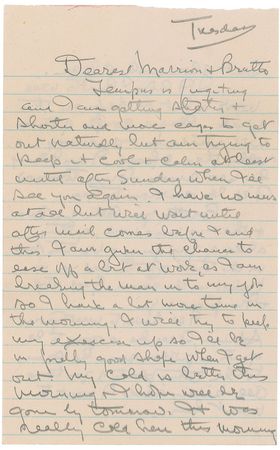 Tuesday
Dearest Marrion & Brutto
Tempus is fugiting
and I am getting shorty &
shorter and more eager to get
out naturally but am trying to
keep it cool & calm at least
until after Sunday when I'll
see you again. I have no news
at all but will wait until
after mail comes before I end
this. I am given the chance to
ease off a bit at work, as I am
breaking the man in to my job
so I have a lot more time in
the morning. I will try to pick
my exercise up so I'll be
in pretty good shape when I get
out. My cold is better this
morning & I hope will be
gone by tomorrow. It was
really cold here this morning